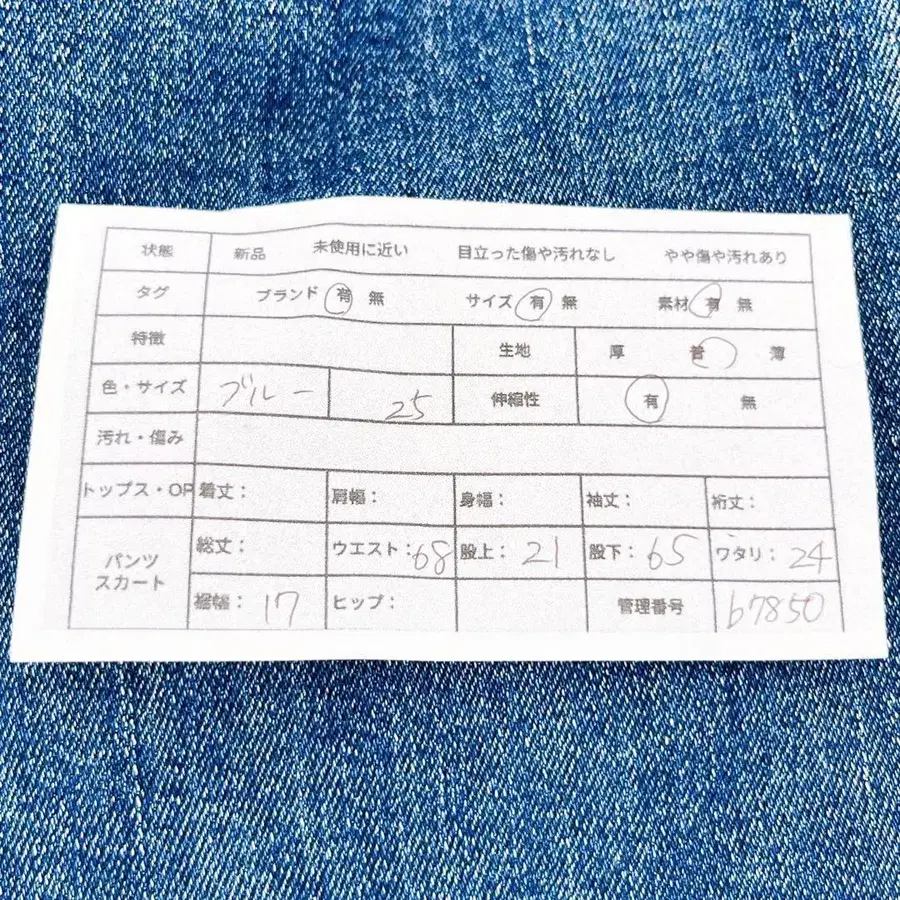 状態 新品 未使用に近い 目立った傷や汚れなし やや傷や汚れあり
タグ ブランド 有 無 サイズ 有 無 素材 有 無
特徴 生地 厚 普 薄
色・サイズ ブルー 25 伸縮性 有 無
汚れ・傷み
トップス・OP 着丈： 肩幅： 身幅： 袖丈： 裄丈：
パンツ スカート 総丈： ウエスト：68 股上：21 股下：65 ワタリ：24
裾幅：17 ヒップ： 管理番号 b7850